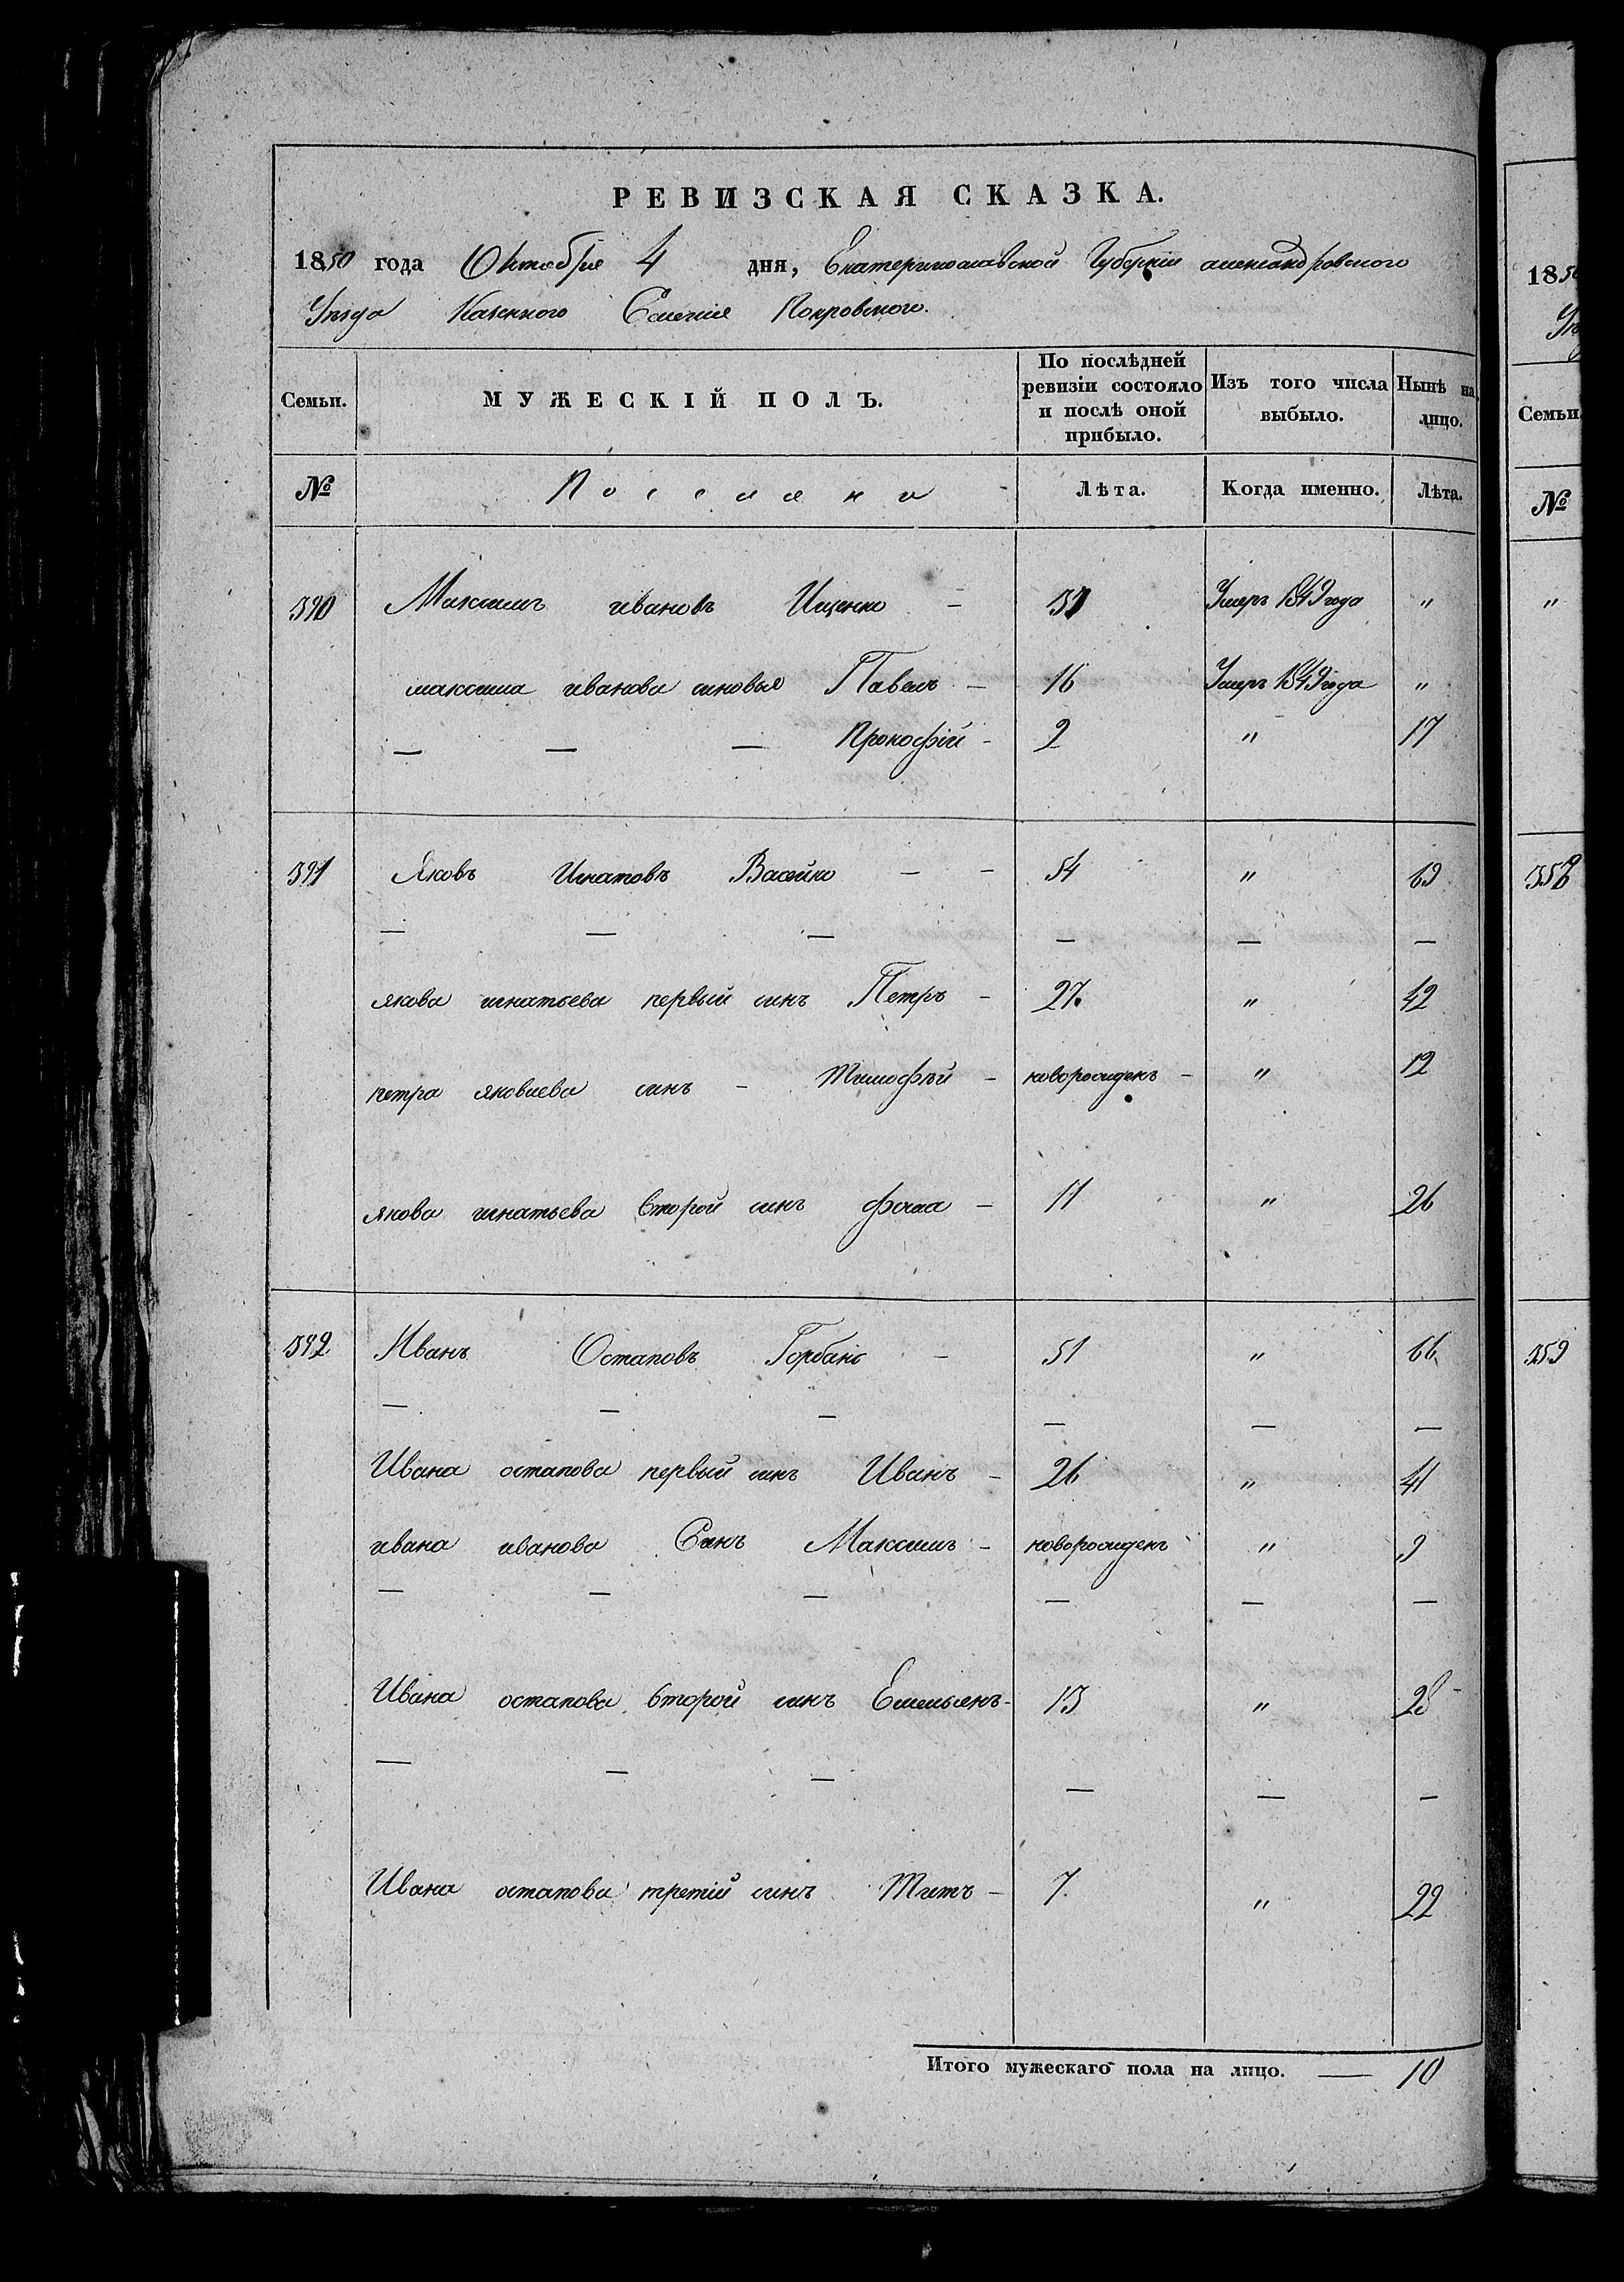 РЕВИЗСКАЯ СКАЗКА.
1850 года Октября 4 дня, Екатеринославской Губерніи александровского
Уезда Казенного Селенія Покровского.
Семьи. МУЖЕСКІЙ ПОЛЪ. По послѣдней ревизіи состояло и послѣ оной прибыло. Изъ того числа выбыло. Нынѣ на лицо.
№ Поселяне Лѣта. Когда именно. Лѣта.
390 Максимъ ивановъ Ищенко — 37 Умеръ 1849 года "
максима иванова сыновья Павелъ — 16 Умеръ 1849 года "
— — — Прокофій - 2 " 17
391 Яковъ Игнатовъ Васейко — - 54 " 69
— — — — — —
якова игнатьева первый синъ Петръ - 27. " 42
петра яковлева синъ - Тимофѣй - новорожденъ - " 12
якова игнатьева второй синъ фома — 11 " 26
392 Иванъ Остаповъ Горбань — 51 " 66
— — — — — —
Ивана остапова первый синъ Иванъ - 26 " 41
ивана иванова Синъ Максимъ - новорожденъ " 9
— — — — — —
Ивана остапова второй синъ Емельянъ - 13 " 28
— — — — — —
Ивана остапова третій синъ Титъ - 7 " 22
Итого мужескаго пола на лицо. — 10
1850
Уез
Семьи
№
"
358
359